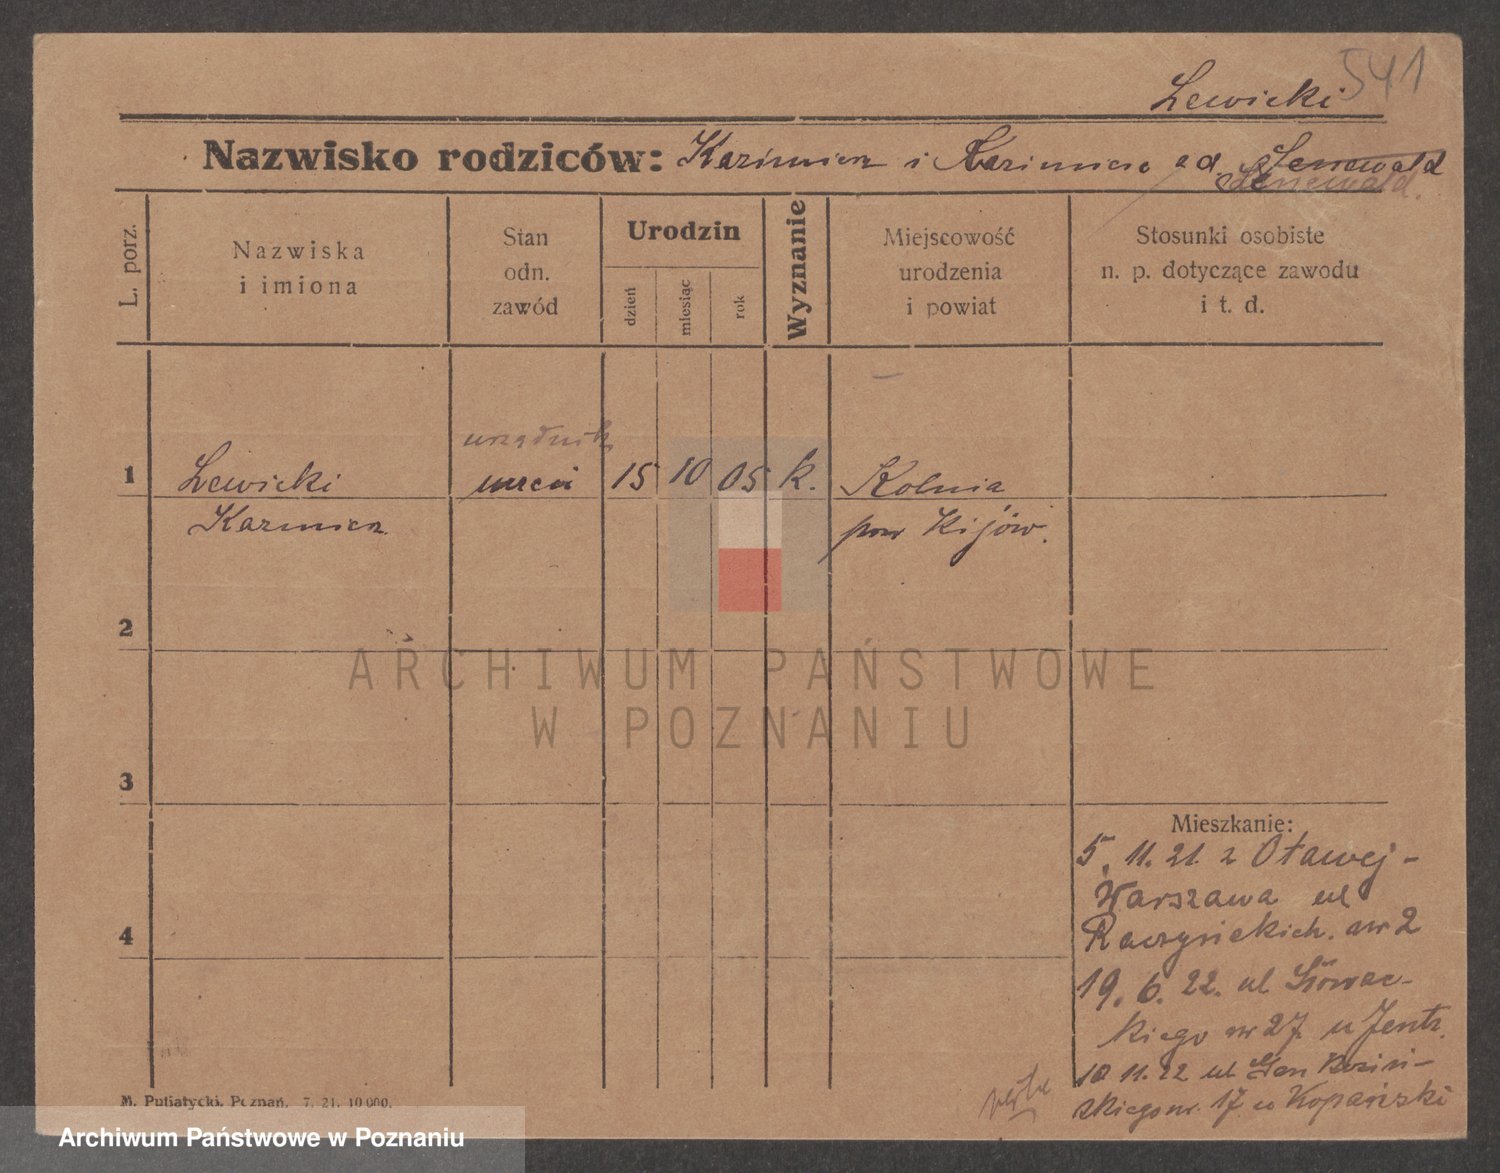 541
Lewicki
Nazwisko rodziców: Kazimierz i Kazimiera od.
L. porz.
Nazwiska i imiona
Stan odn. zawód
Urodzin
dzień
miesiąc
rok
Wyznanie
Miejscowość urodzenia i powiat
Stosunki osobiste n. p. dotyczące zawodu i t. d.
urzędnik
1 Lewicki uczeń 15 10 05 k. Kolnia
Kazimierz pow Kijów.
2
ARCHIWUM PAŃSTWOWE
W POZNANIU
3
Mieszkanie:
5. 11. 21. z
Warszawa ul
4 Raczyńskich. nr 2
19. 6. 22. ul Słowac-
kiego nr 27. u Jentz.
10 11. 22 ul Gen Kosiń-
skiego nr. 17. u Kopański
M. Putiatycki, Poznań. 7. 21. 10 000.
Archiwum Państwowe w Poznaniu